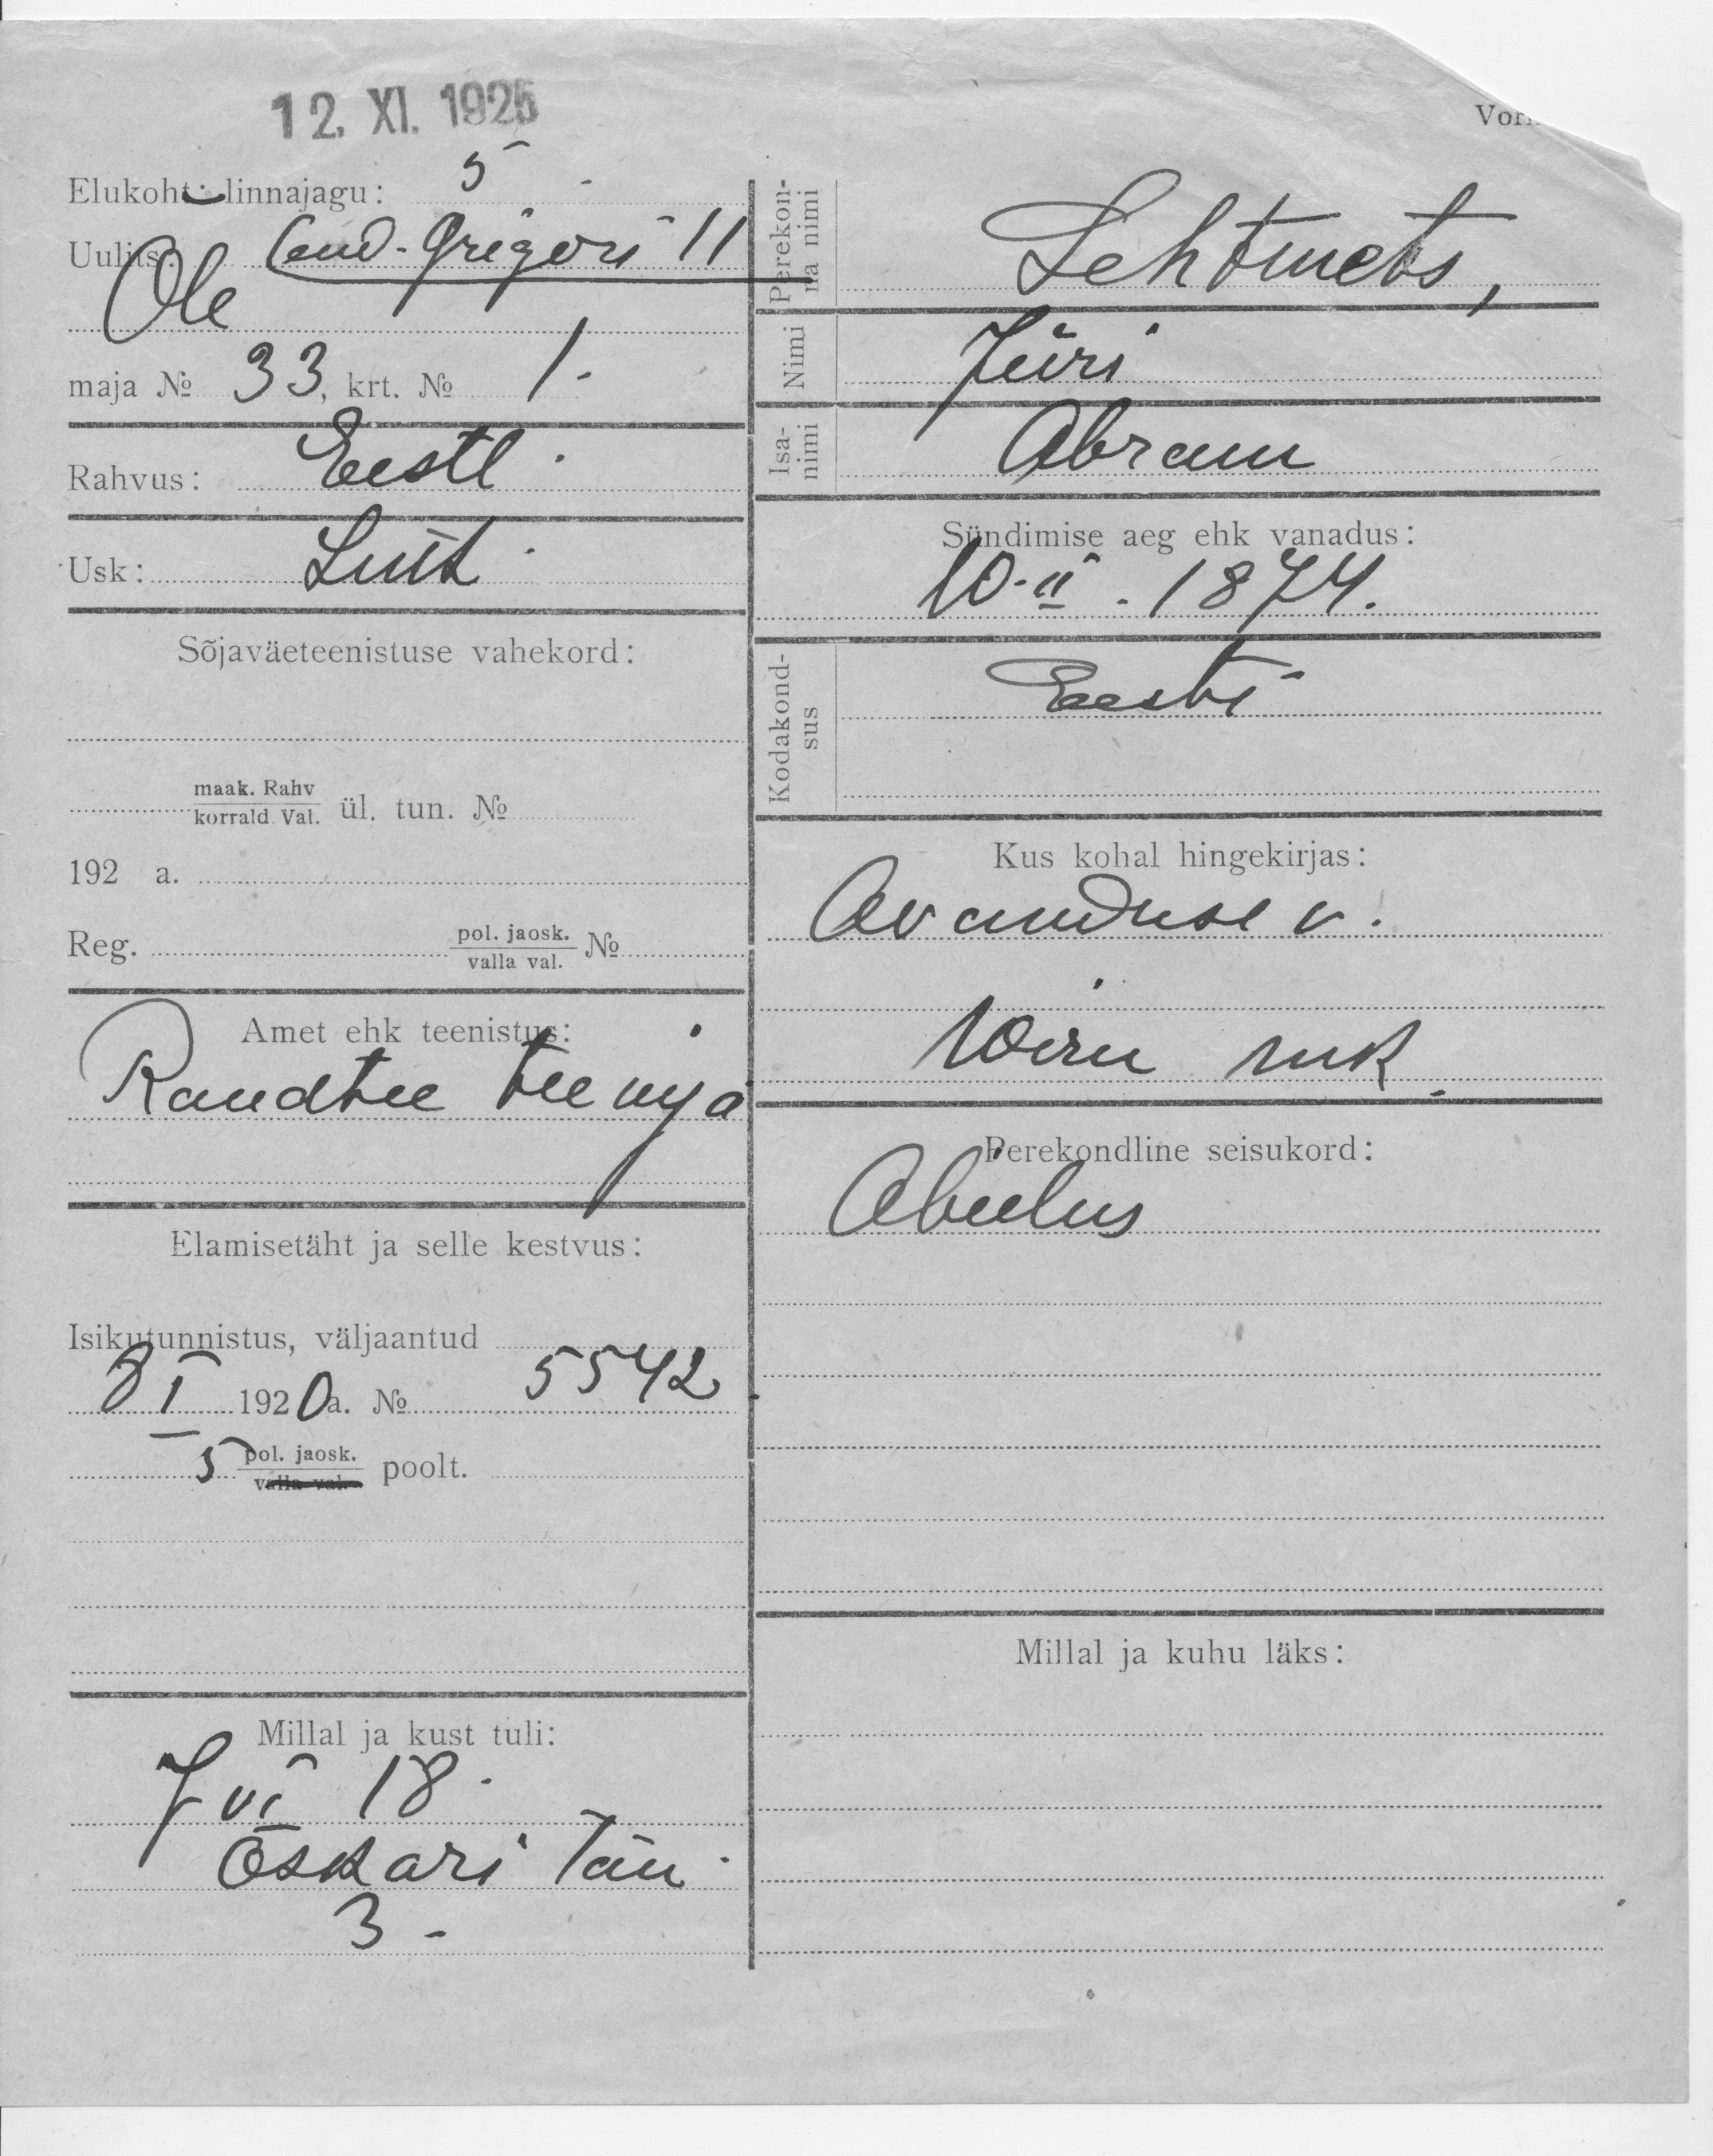 12. XI. 1925
Elukoht: linnajagu: 5
Uulits: Grigori 11
Ole
maja № 33, krt. № 1.
Rahvus: Eesti
Usk: Lutt
Sõjaväeteenistuse vahekord:
maak. Rahv
korrald. Val. ül. tun. №
192 a.
Reg. pol. jaosk.
valla val. №
Amet ehk teenistus:
Raudtee teenija
Elamisetäht ja selle kestvus:
Isikutunnistus, väljaantud
8 I 1920 a. № 5542
5 pol. jaosk.
valla val. poolt.
Millal ja kust tuli:
7 VI 18.
Oskari Tän.
3 -
Perekon-
na nimi
Lehtmets,
Nimi
Jüri
Isa-
nimi
Abram
Sündimise aeg ehk vanadus:
10. II. 1874.
Kodakond-
sus
Eesti
Kus kohal hingekirjas:
Avanduse v.
Wiru mk.
Perekondline seisukord:
Abielus
Millal ja kuhu läks: